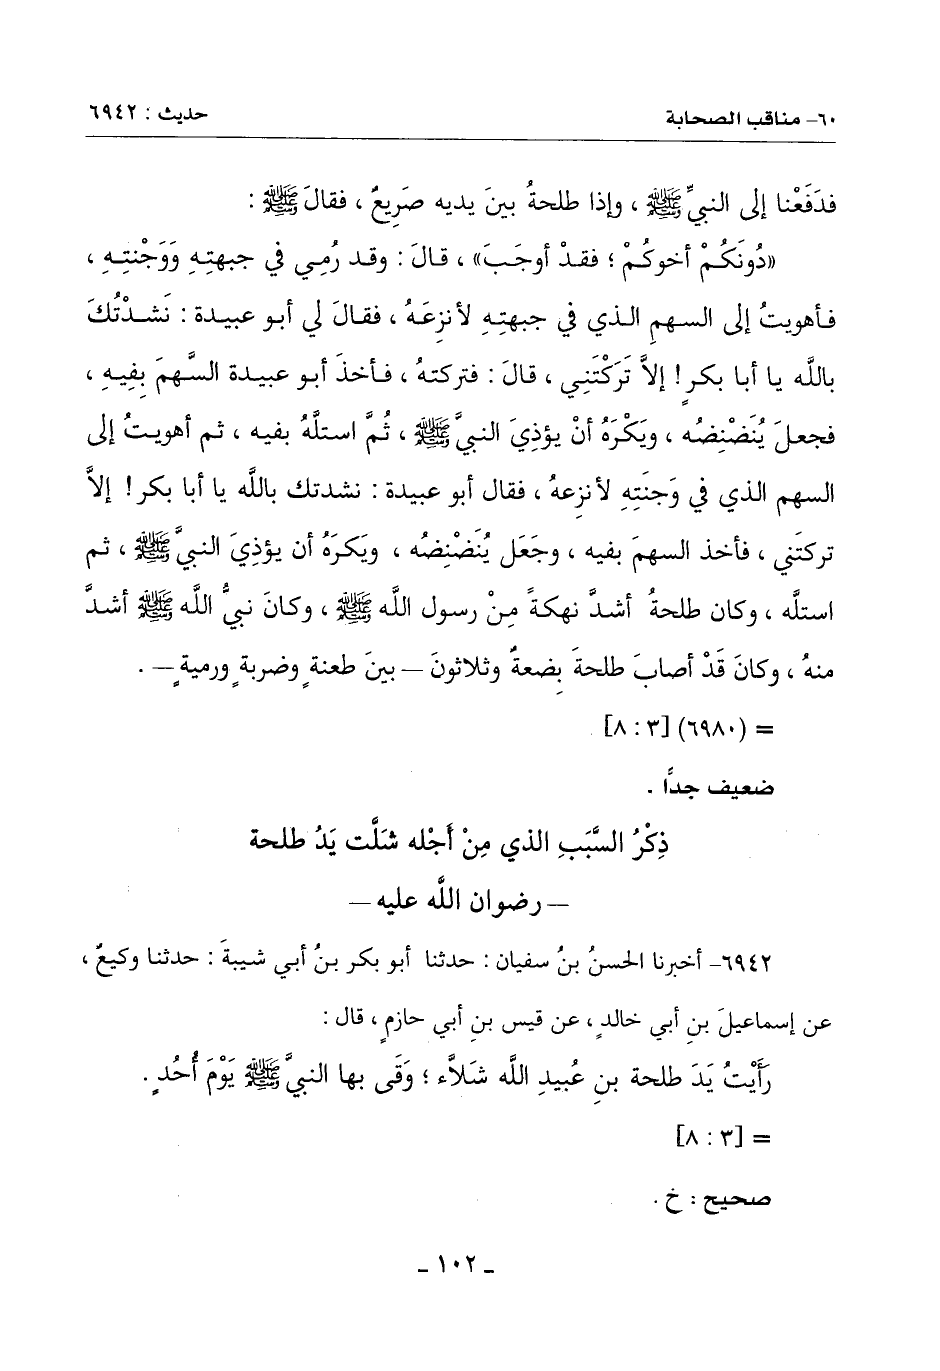 ٦٠- مناقب الصحابة حديث : ٦٩٤٢
فدَفَعْنا إلى النبيِّ ﷺ ، وإذا طلحةُ بينَ يديه صَرِيعٌ ، فقالَ ﷺ :
«دُونَكُمْ أخوكُمْ ؛ فقدْ أوجَبَ» ، قالَ : وقد رُمِي في جبهتِهِ وَوَجْنتِهِ ،
فأهويتُ إلى السهمِ الذي في جبهتِهِ لأنزعَهُ ، فقالَ لي أبو عبيدة : نَشدْتُكَ
بالله يا أبا بكرٍ! إلاَّ تَرَكْتَنِي ، قالَ : فتركتهُ ، فأخذَ أبو عبيدة السَّهمَ بِفيهِ ،
فجعلَ يُنَضْنِضُه ، ويَكْرَهُ أنْ يؤذِيَ النبيَّ ﷺ ، ثُمَّ استلَّهُ بفيه ، ثم أهويتُ إلى
السهم الذي في وَجنَتِهِ لأنزعهُ ، فقال أبو عبيدة : نشدتك باللَّه يا أبا بكر! إلاَّ
تركتَني ، فأخذ السهمَ بفيه ، وجَعَل يُنَضْنِضُه ، ويَكرَهُ أن يؤذِيَ النبيَّ ﷺ ، ثم
استلَّه ، وكان طلحةُ أشدَّ نهكةً مِنْ رسول اللَّه ﷺ ، وكانَ نبيُّ اللَّه ﷺ أشدَّ
منهُ ، وكانَ قَدْ أصابَ طلحةَ بِضعةٌ وثلاثونَ – بينَ طعنةٍ وضربةٍ ورميةٍ – .
= (٦٩٨٠) [٣ : ٨]
ضعيف جداً .
ذِكْرُ السَّبَبِ الذي مِنْ أَجْله شَلَّت يَدُ طلحة
– رضوان اللَّه عليه –
٦٩٤٢- أخبرنا الحسنُ بنُ سفيان : حدثنا أبو بكر بنُ أبي شيبةَ : حدثنا وكيعٌ ،
عن إسماعيلَ بنِ أبي خالدٍ ، عن قيس بنِ أبي حازمٍ ، قال :
رَأَيْتُ يَدَ طلحة بنِ عُبيدِ اللَّه شَلاَّء ؛ وَقَى بها النبيَّ ﷺ يَوْمَ أُحُدٍ .
= [٣ : ٨]
صحيح : خ .
- ١٠٢ -